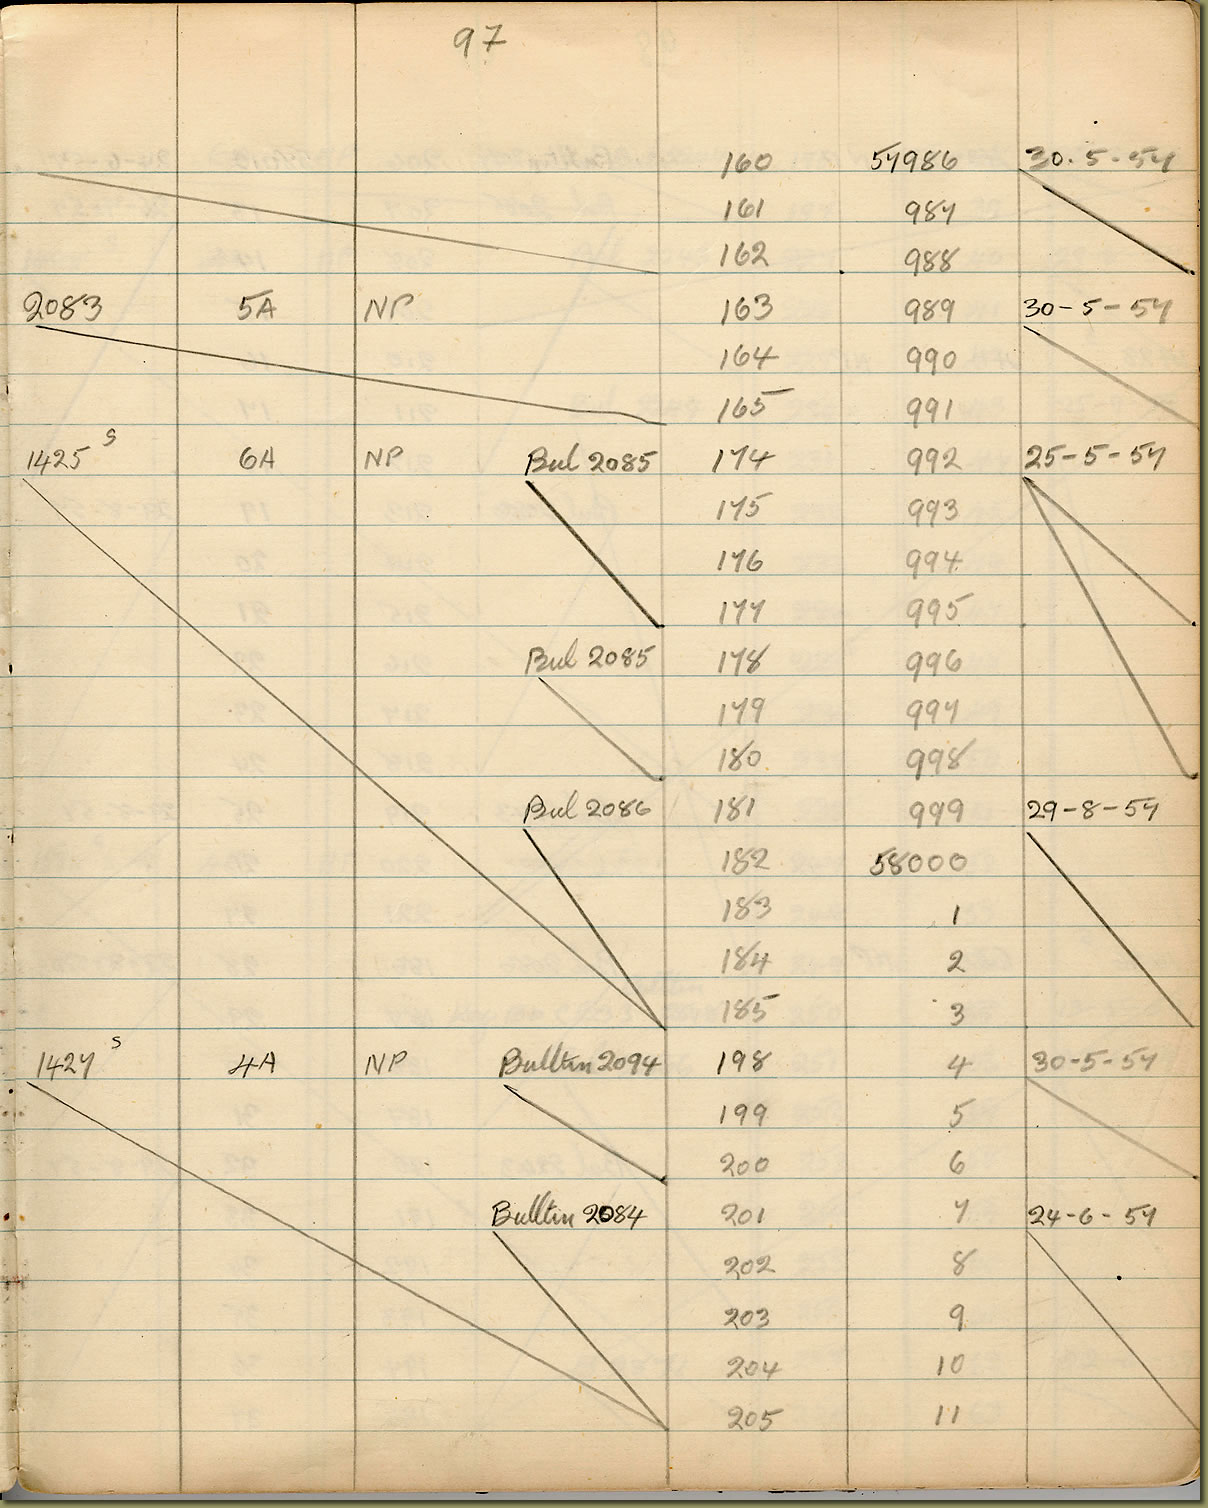 97
160 57986 30.5-57
161 987
162 988
2083 5A NP 163 989 30-5-57
164 990
165 991
1425 s 6A NP Bul 2085 174 992 25-5-57
175 993
176 994
177 995
Bul 2085 178 996
179 997
180 998
Bul 2086 181 999 29-8-57
182 58000
183 1
184 2
185 3
1427 s 4A NP Bulltin 2094 198 4 30-5-57
199 5
200 6
Bulltin 2084 201 7 24-6-57
202 8
203 9
204 10
205 11